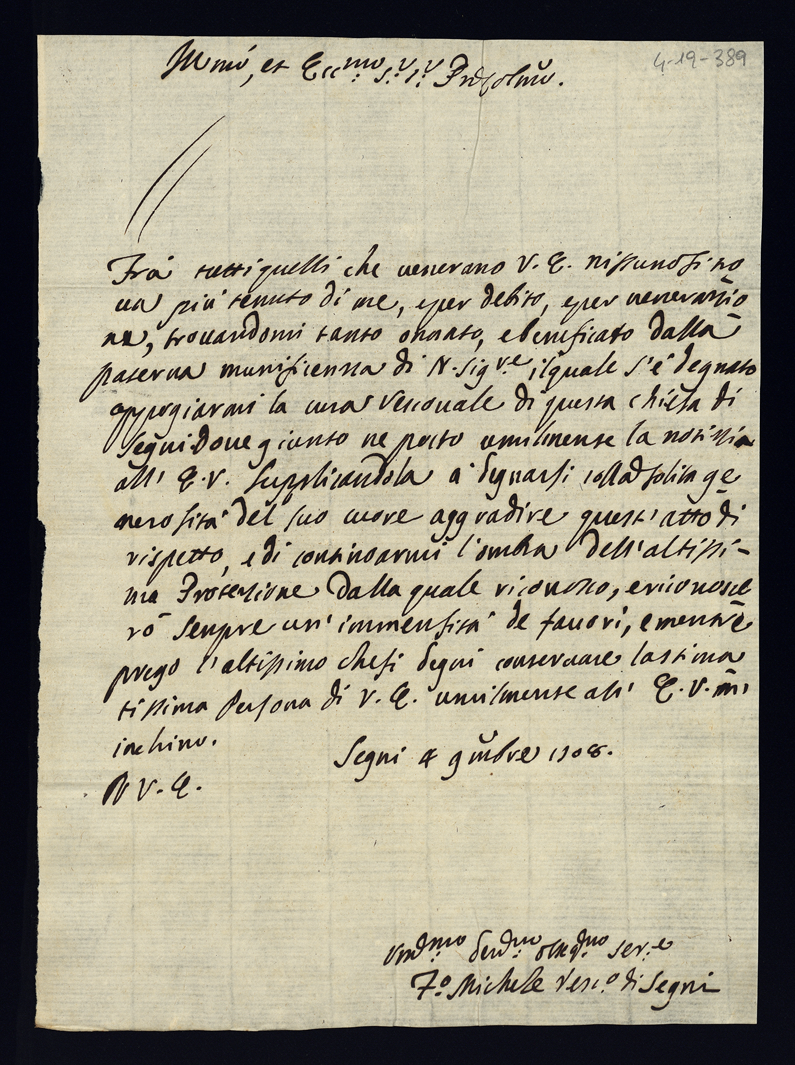 4-19-389
Illmo, et Eccmo Sr. Sr. Prōn Colmo.
Frà tutti quelli che venerano V. E. nissuno si ritro
va più tenuto di me, e per debito, e per venerazio
ne, trovandomi tanto onorato, e benificato dalla
paterna munificenza di N. Sigre, il quale s'è degnato
appogiarmi la cura Vescovale di questa chiesa di
Segni dove giunto ne porto umilmente la notizia
all' E. V. supplicandola à degnarsi colla solita ge
nerosità del suo cuore aggradire quest'atto di
rispetto, e di continoarmi l'ombra dell'altissi-
ma Protezione dalla quale riconosco, e riconosce
rò senpre un'immensità de favori, e mentre
prego l'altissimo che si degni conservare la stima
tissima Persona di V. E. umilmente all' E. V. m'
inchino.
Segni 4 9mbre 1708.
D V. E.
Umdmo Devdmo Obbgdmo Serre
Fo Michele Vesco di Segni